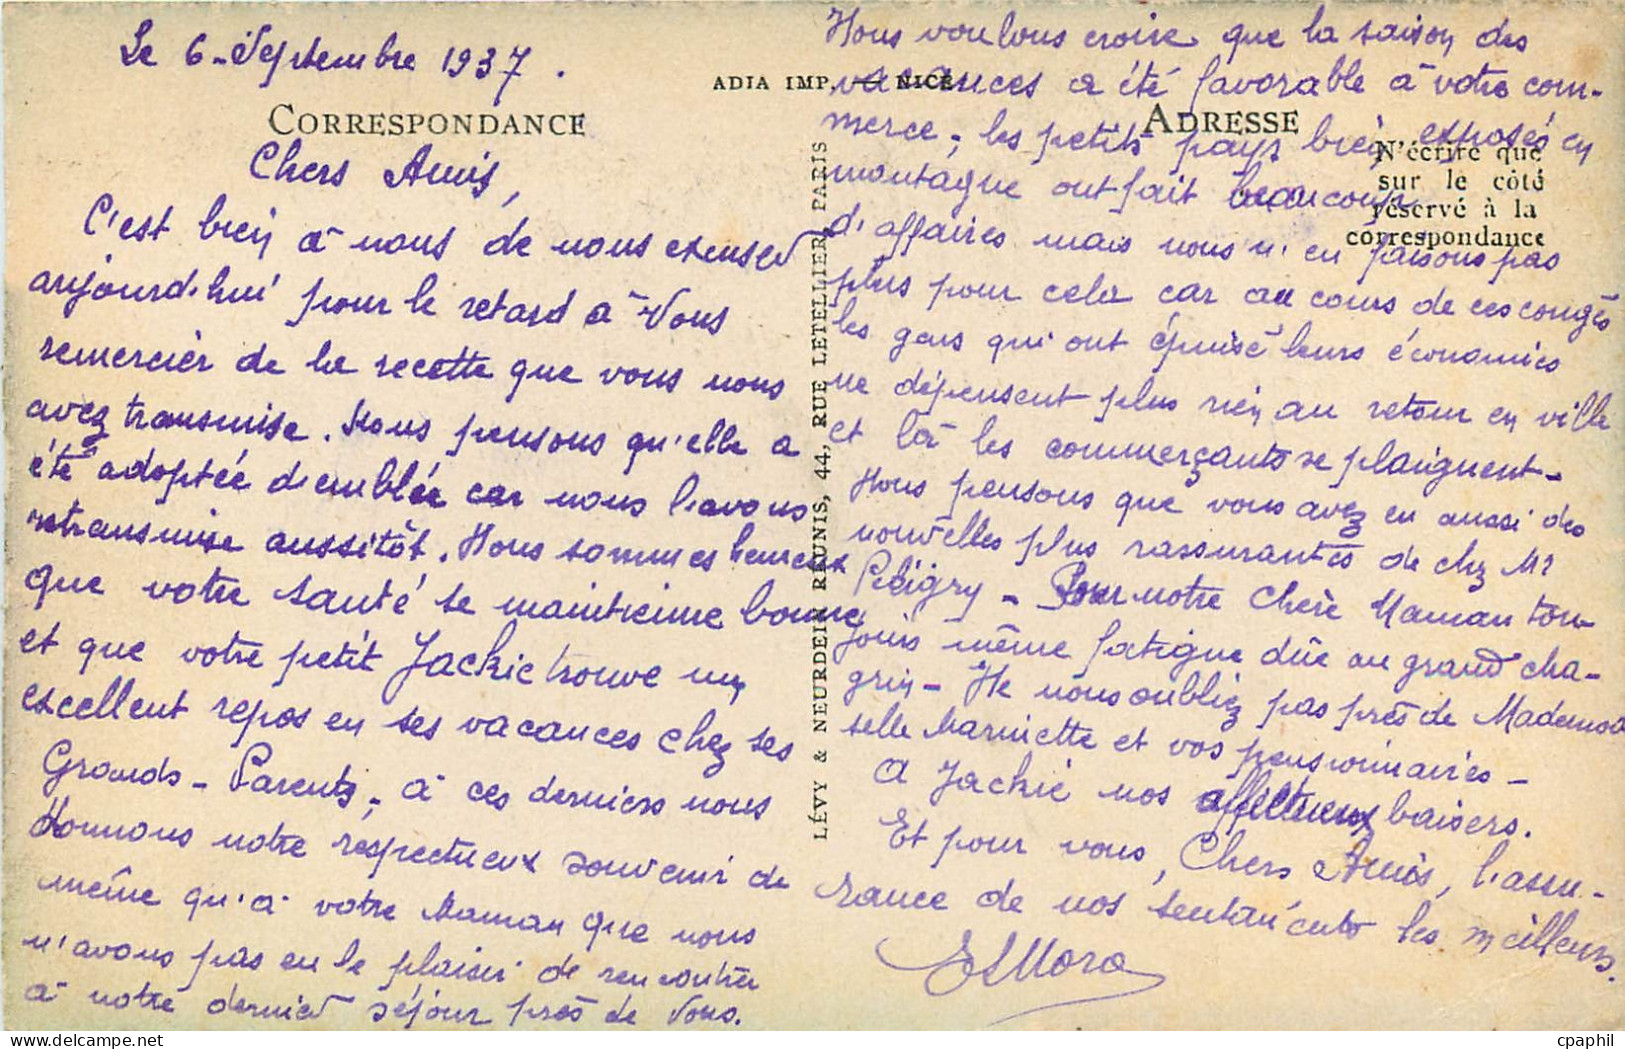 Le 6-Septembre 1937.
CORRESPONDANCE
Chers Amis,
C'est bien à nous de nous excuser
aujourd'hui pour le retard à Vous
remercier de la recette que vous nous
avez transmise. Nous pensons qu'elle a
été adoptée d'emblée car nous l'avons
retransmise aussitôt. Nous sommes heureux
que votre santé se maintienne bonne
et que votre petit Jackie trouve un
excellent repos en ses vacances chez ses
Grands-Parents, à ces derniers nous
donnons notre respectueux souvenir de
même qu'à votre Maman que nous
n'avons pas eu le plaisir de rencontrer
à notre dernier séjour près de Vous.
ADIA IMP. — NICE
LÉVY & NEURDEIN RÉUNIS, 44, RUE LETELLIER, PARIS
ADRESSE
N'écrire que
sur le côté
réservé à la
correspondance
Nous voulons croire que la saison des
vacances a été favorable à votre com-
merce, les petits pays bien exposés en
montagne ont fait beaucoup
d'affaires mais nous n'en faisons pas
plus pour cela car au cours de ces congés
les gens qui ont épuisé leurs économies
ne dépensent plus rien au retour en ville
et là les commerçants se plaignent-
Nous pensons que vous avez eu aussi des
nouvelles plus rassurantes de chez Mr
Peligry - Pour notre Chère Maman tou-
jours même fatigue dûe au grand cha-
grin - Ne nous oubliez pas près de Mademoi
selle Marinette et vos pensionnaires -
A Jackie nos affectueux baisers.
Et pour vous, Chers Amis, l'assu-
rance de nos sentiments les meilleurs.
cpaphil.com